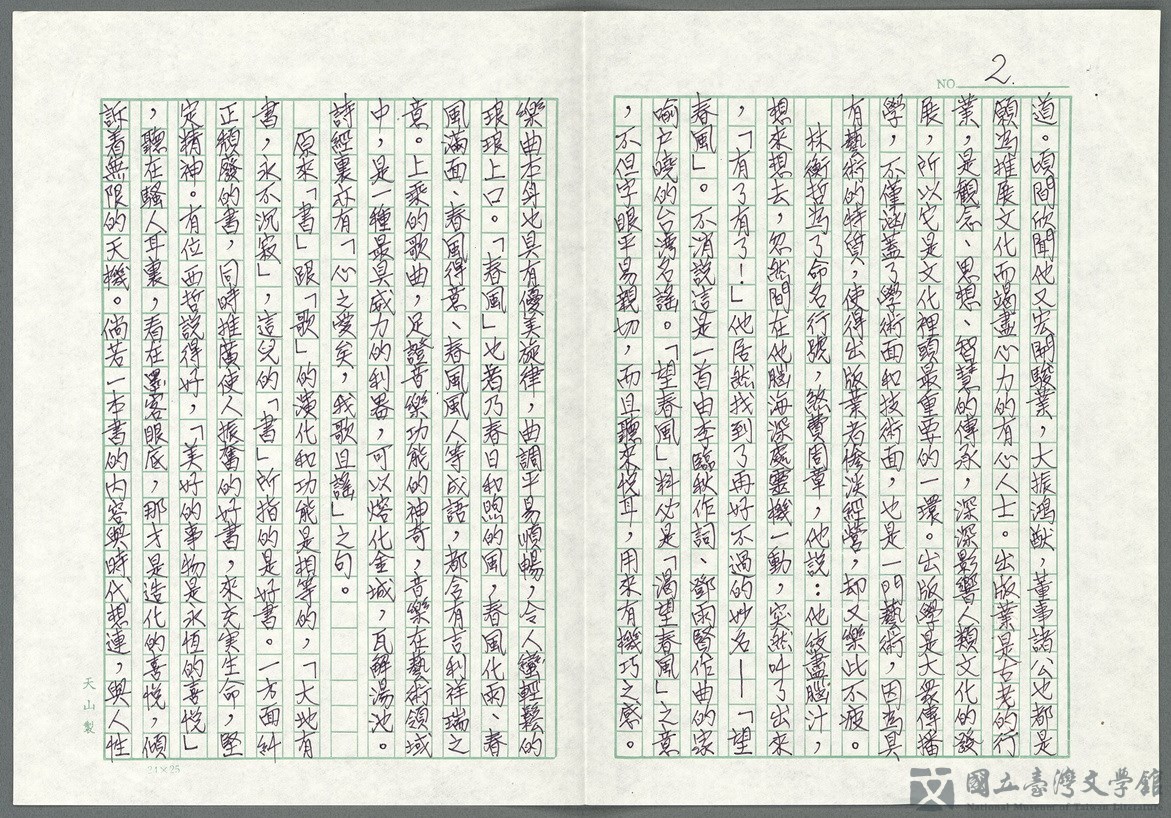 NO. 2.
道。頃間欣聞他又宏開駿業,大振鴻猷,董事諸公也都是
願為推展文化而竭盡心力的有心人士。出版業是古老的行
業,是觀念、思想、智慧的傳承,深深影響人類文化的發
展,所以它是文化裡頭最重要的一環。出版學是大衆傳播
學,不僅涵蓋了學術面和技術面,也是一門藝術,因為具
有藝術的特質,使得出版業者慘淡經營,却又樂此不疲。
林衡哲為了命名行號,煞費周章,他說:他絞盡腦汁,
想來想去,忽然間在他腦海深處靈機一動,突然叫了出來
,「有了有了!」他居然找到了再好不過的妙名——「望
春風」。不消說這是一首由李臨秋作詞、鄧雨賢作曲的家
喻户曉的台湾名謠。「望春風」料必是「渴望春風」之意
,不但字眼平易親切,而且聽來悅耳,用來有機巧之感。
樂曲本身也具有優美旋律,曲調平易順暢,令人蠻輕鬆的
琅琅上口。「春風」也者乃春日和煦的風,春風化雨、春
風滿面、春風得意、春風風人等成語,都含有吉利祥瑞之
意。上乘的歌曲,足證音樂功能的神奇,音樂在藝術領域
中,是一種最具威力的利器,可以熔化金城,瓦解湯池。
詩經裏亦有「心之愛矣,我歌且謠」之句。
原來「書」跟「歌」的演化和功能是相等的,「大地有
書,永不沉寂」,這兒的「書」所指的是好書。一方面糾
正頹廢的書,同時推廣使人振奮的好書,來充实生命,堅
定精神。有位西哲說得好,「美好的事物是永恆的喜悅」
,聽在騷人耳裏,看在墨客眼底,那才是造化的喜悅,傾
訴着無限的天機。倘若一本書的内容與時代想連,與人性
天山製
24×25
國立臺灣文學館
National Museum of Taiwan Literature